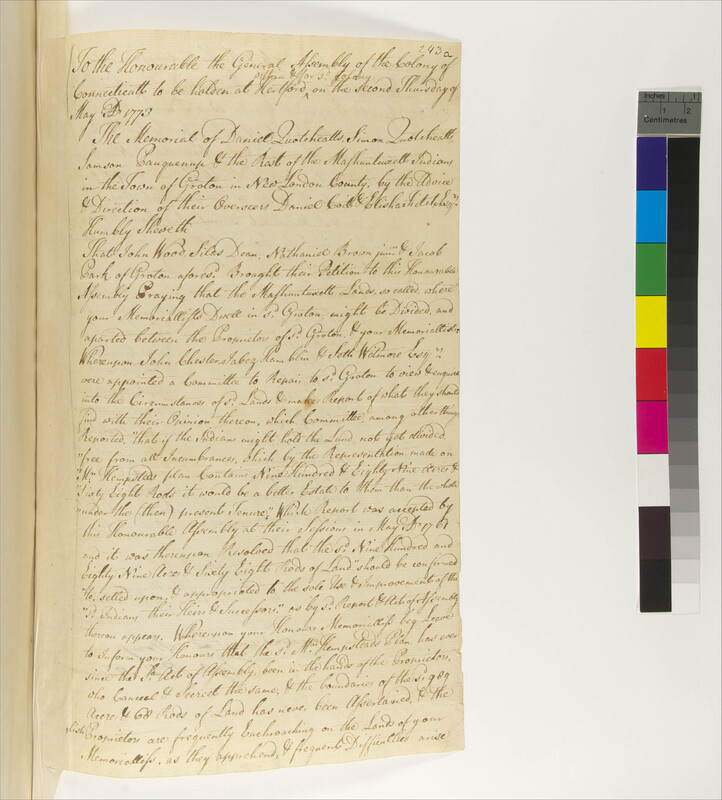 243a
To the Honourable the General Assembly of the Colony of
in form & for sd. Colony
Connecticutt to be holden at Hertford, on the second Thursday of
May AD 1773
The Memorial of Daniel Quotsheatts, Simon Quotsheatts,
Samson Pauquenup & the Rest of the Mashuntuxett Indians
in the Town of Groton in New London County, by the Advice
& Direction of their Overseers Daniel Coit & Elisha Fitch Esqrs.
Humbly Sheweth
That John Wood, Silas Dean, Nathaniel Brown junr. & Jacob
Park of Groton aforesd. Brought their Petition to this Honourable
Assembly Praying that the Mashuntuxett Lands, so called, where
your Memoriallists Dwell in sd. Groton, might be Divided, and
aparted between the Proprietors of sd. Groton, & your Memoriallists.
Whereupon John Chester Jabez Hamblin & Seth Wetmore Esqrs.
were appointed a Committee to Repair to sd. Groton to view & enquire
into the Circumstances of sd. Lands & make Report of what they should
find with their Opinion thereon, which Committee, among other things
Reported, "that if the Indians might hold the Land not yet divided,
"free from all Incumbrances, which by the Representation made on
"Mr. Hempsteds plan Contains Nine Hundred & Eighty Nine Acres &
"Sixty Eight Rods it would be a better Estate to them than the whole
"under the (then) present Tenure." Which Report was accepted by
this Honourable Assembly at their Sessions in May AD 1761
and it was thereupon Resolved that the sd. Nine Hundred and
Eighty Nine Acre & Sixty Eight Rods of Land "should be confirmed
"to, setled upon, & appropriated to the sole Use & Improvement of the
"sd. Indians their Heirs & Successors" as by sd. Report & Act of Assembly
thereon appears. Whereupon your Honours Memoriallists beg Leave
to Inform your Honours that the sd. Mr. Hempsteads Plan has ever
since the sd. Act of Assembly, been in the hands of the Proprietors,
who Conceal & Secreet the same, & the boundaries of the sd. 989
Acre & 68 Rods of Land has never been Assertained, & the
Proprietors are frequently Encroaching on the Lands of your
Memoriallists, as they apprehend, & frequent Difficulties arise
Inches
1
Centimetres
1
2